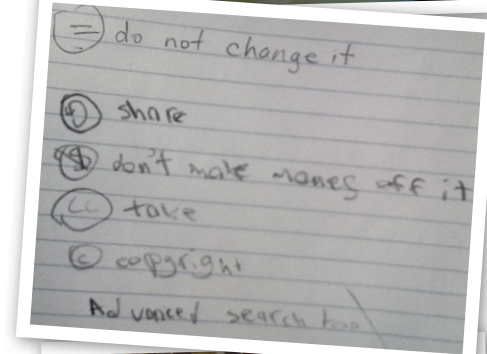 = do not change it
share
$ don't make money off it
cc take
c copyright
Advanced search